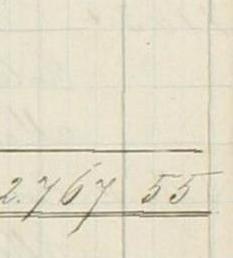 2.767 55